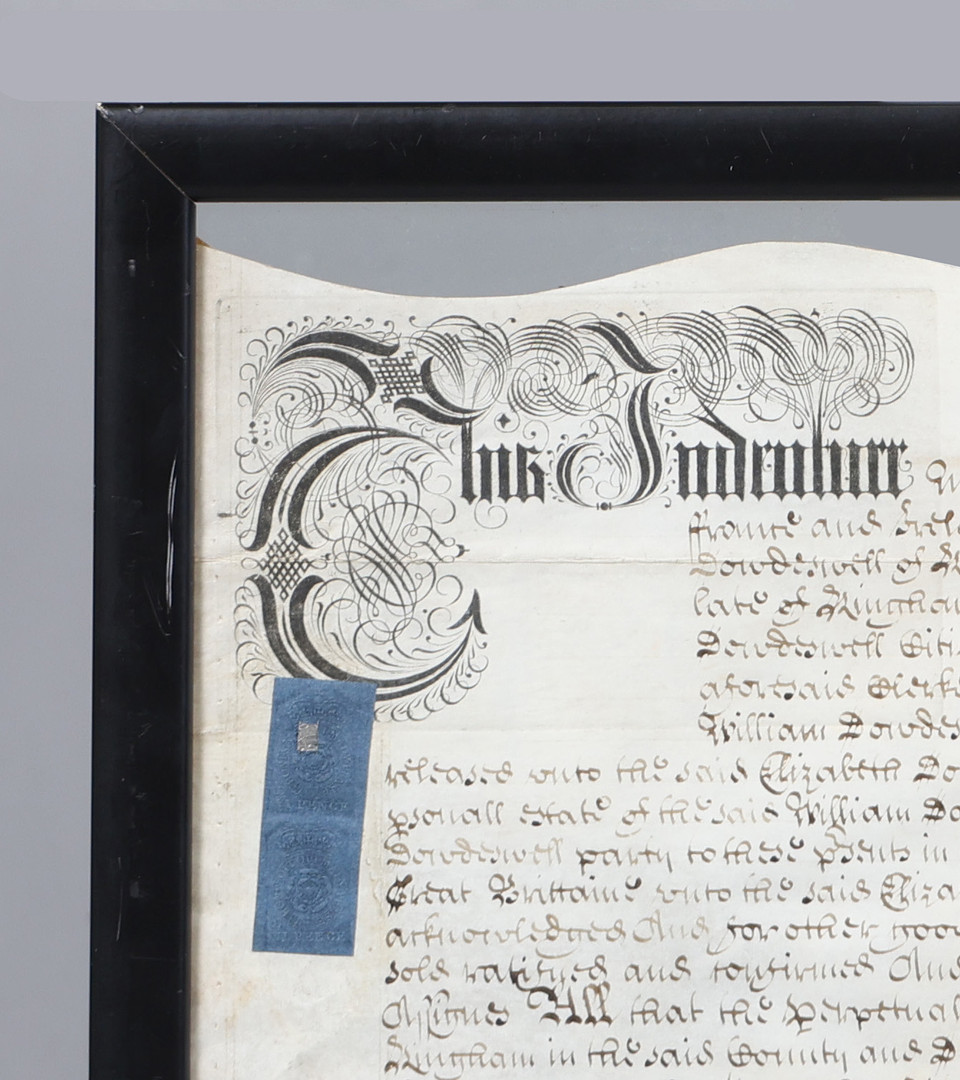 This Indenture
ffrance and Irel
Dowdeswell of
late of Kingham
Dowdeswell Citi
aforesaid Clerk
William Dowdes
released unto the said Elizabeth Do
psonall estate of the said William Do
Dowdeswell party to these psents in
Great Brittaine unto the said Eliza
acknowledged And for other good
sold ratifyed and confirmed And
Assignes All that the perpetual
Kingham in the said County and D
VI PENCE